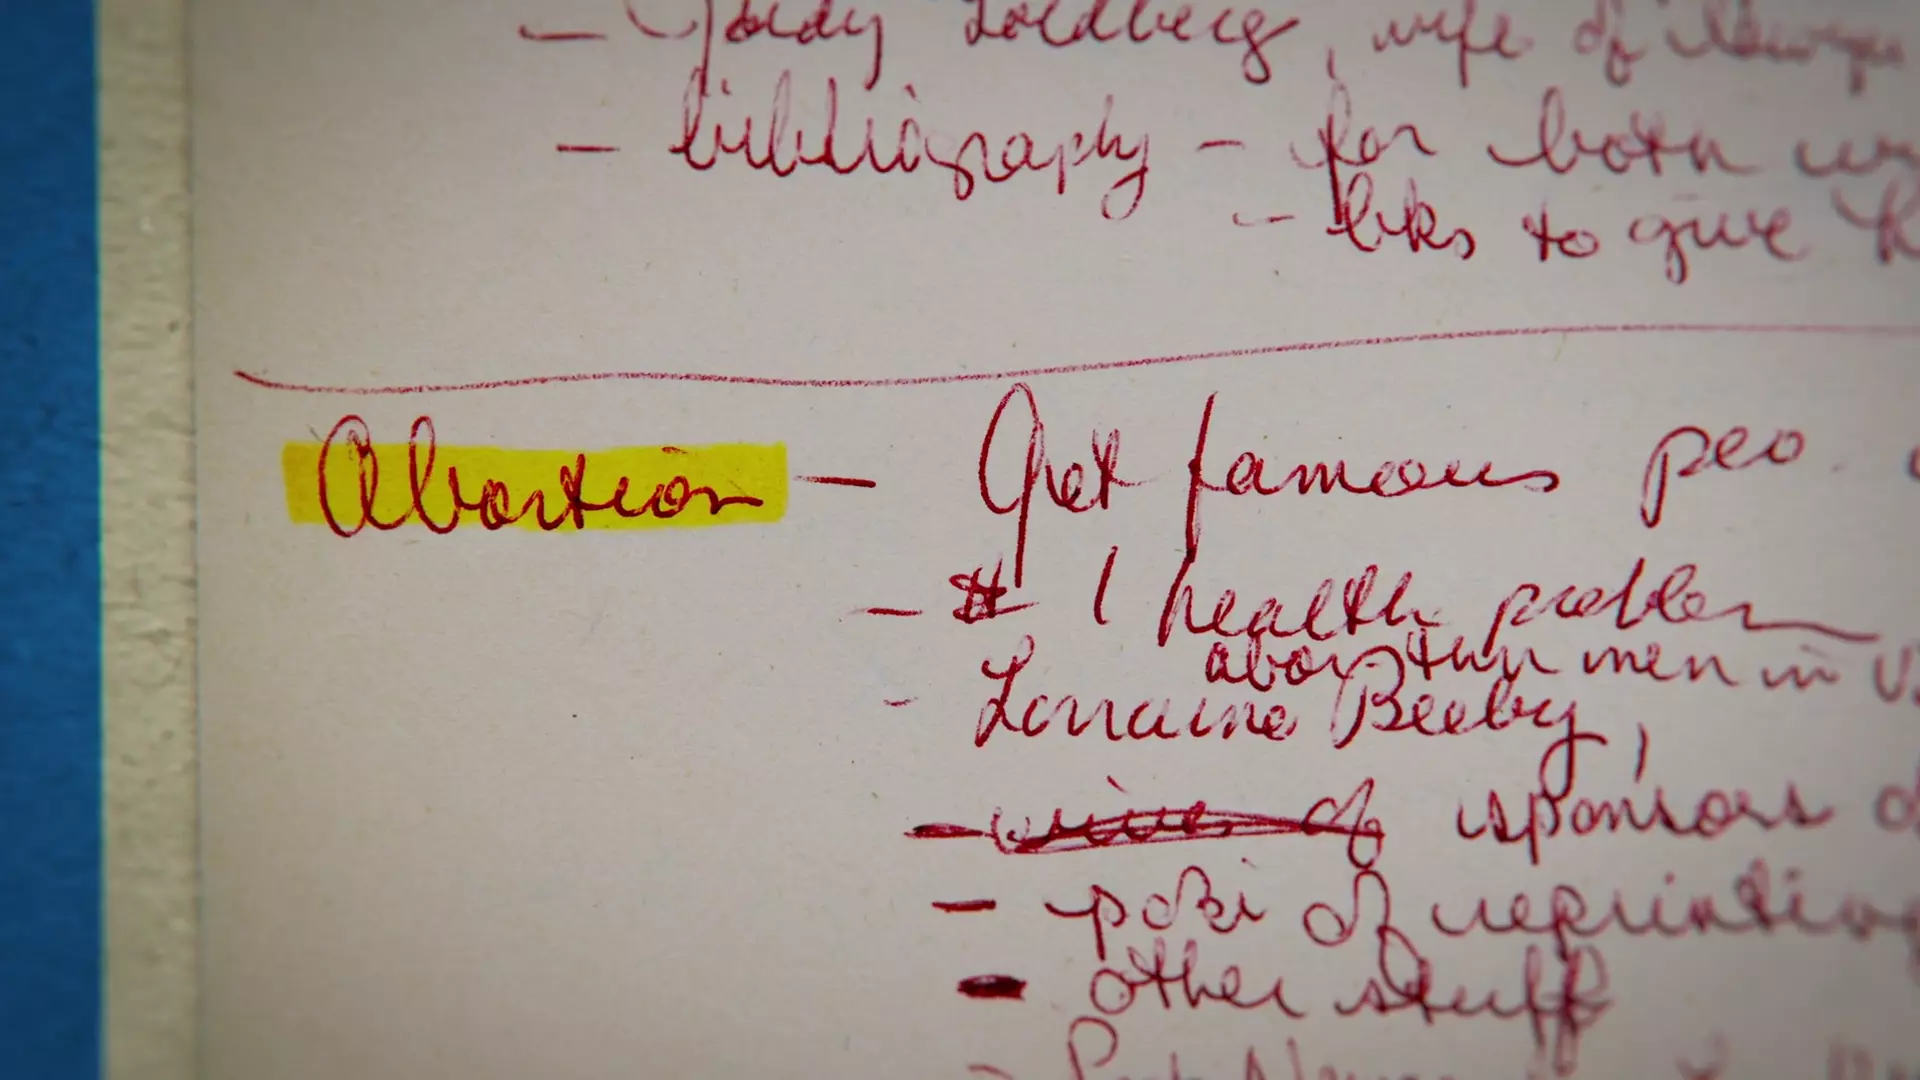 - Goldberg, wife of
- bibliography - for both
- bks to give
Abortion - Get famous peo.
- # 1 health problem
abortion men in
- Lorraine Beeby,
- wives of sponsors
- of reprinting
- other stuff